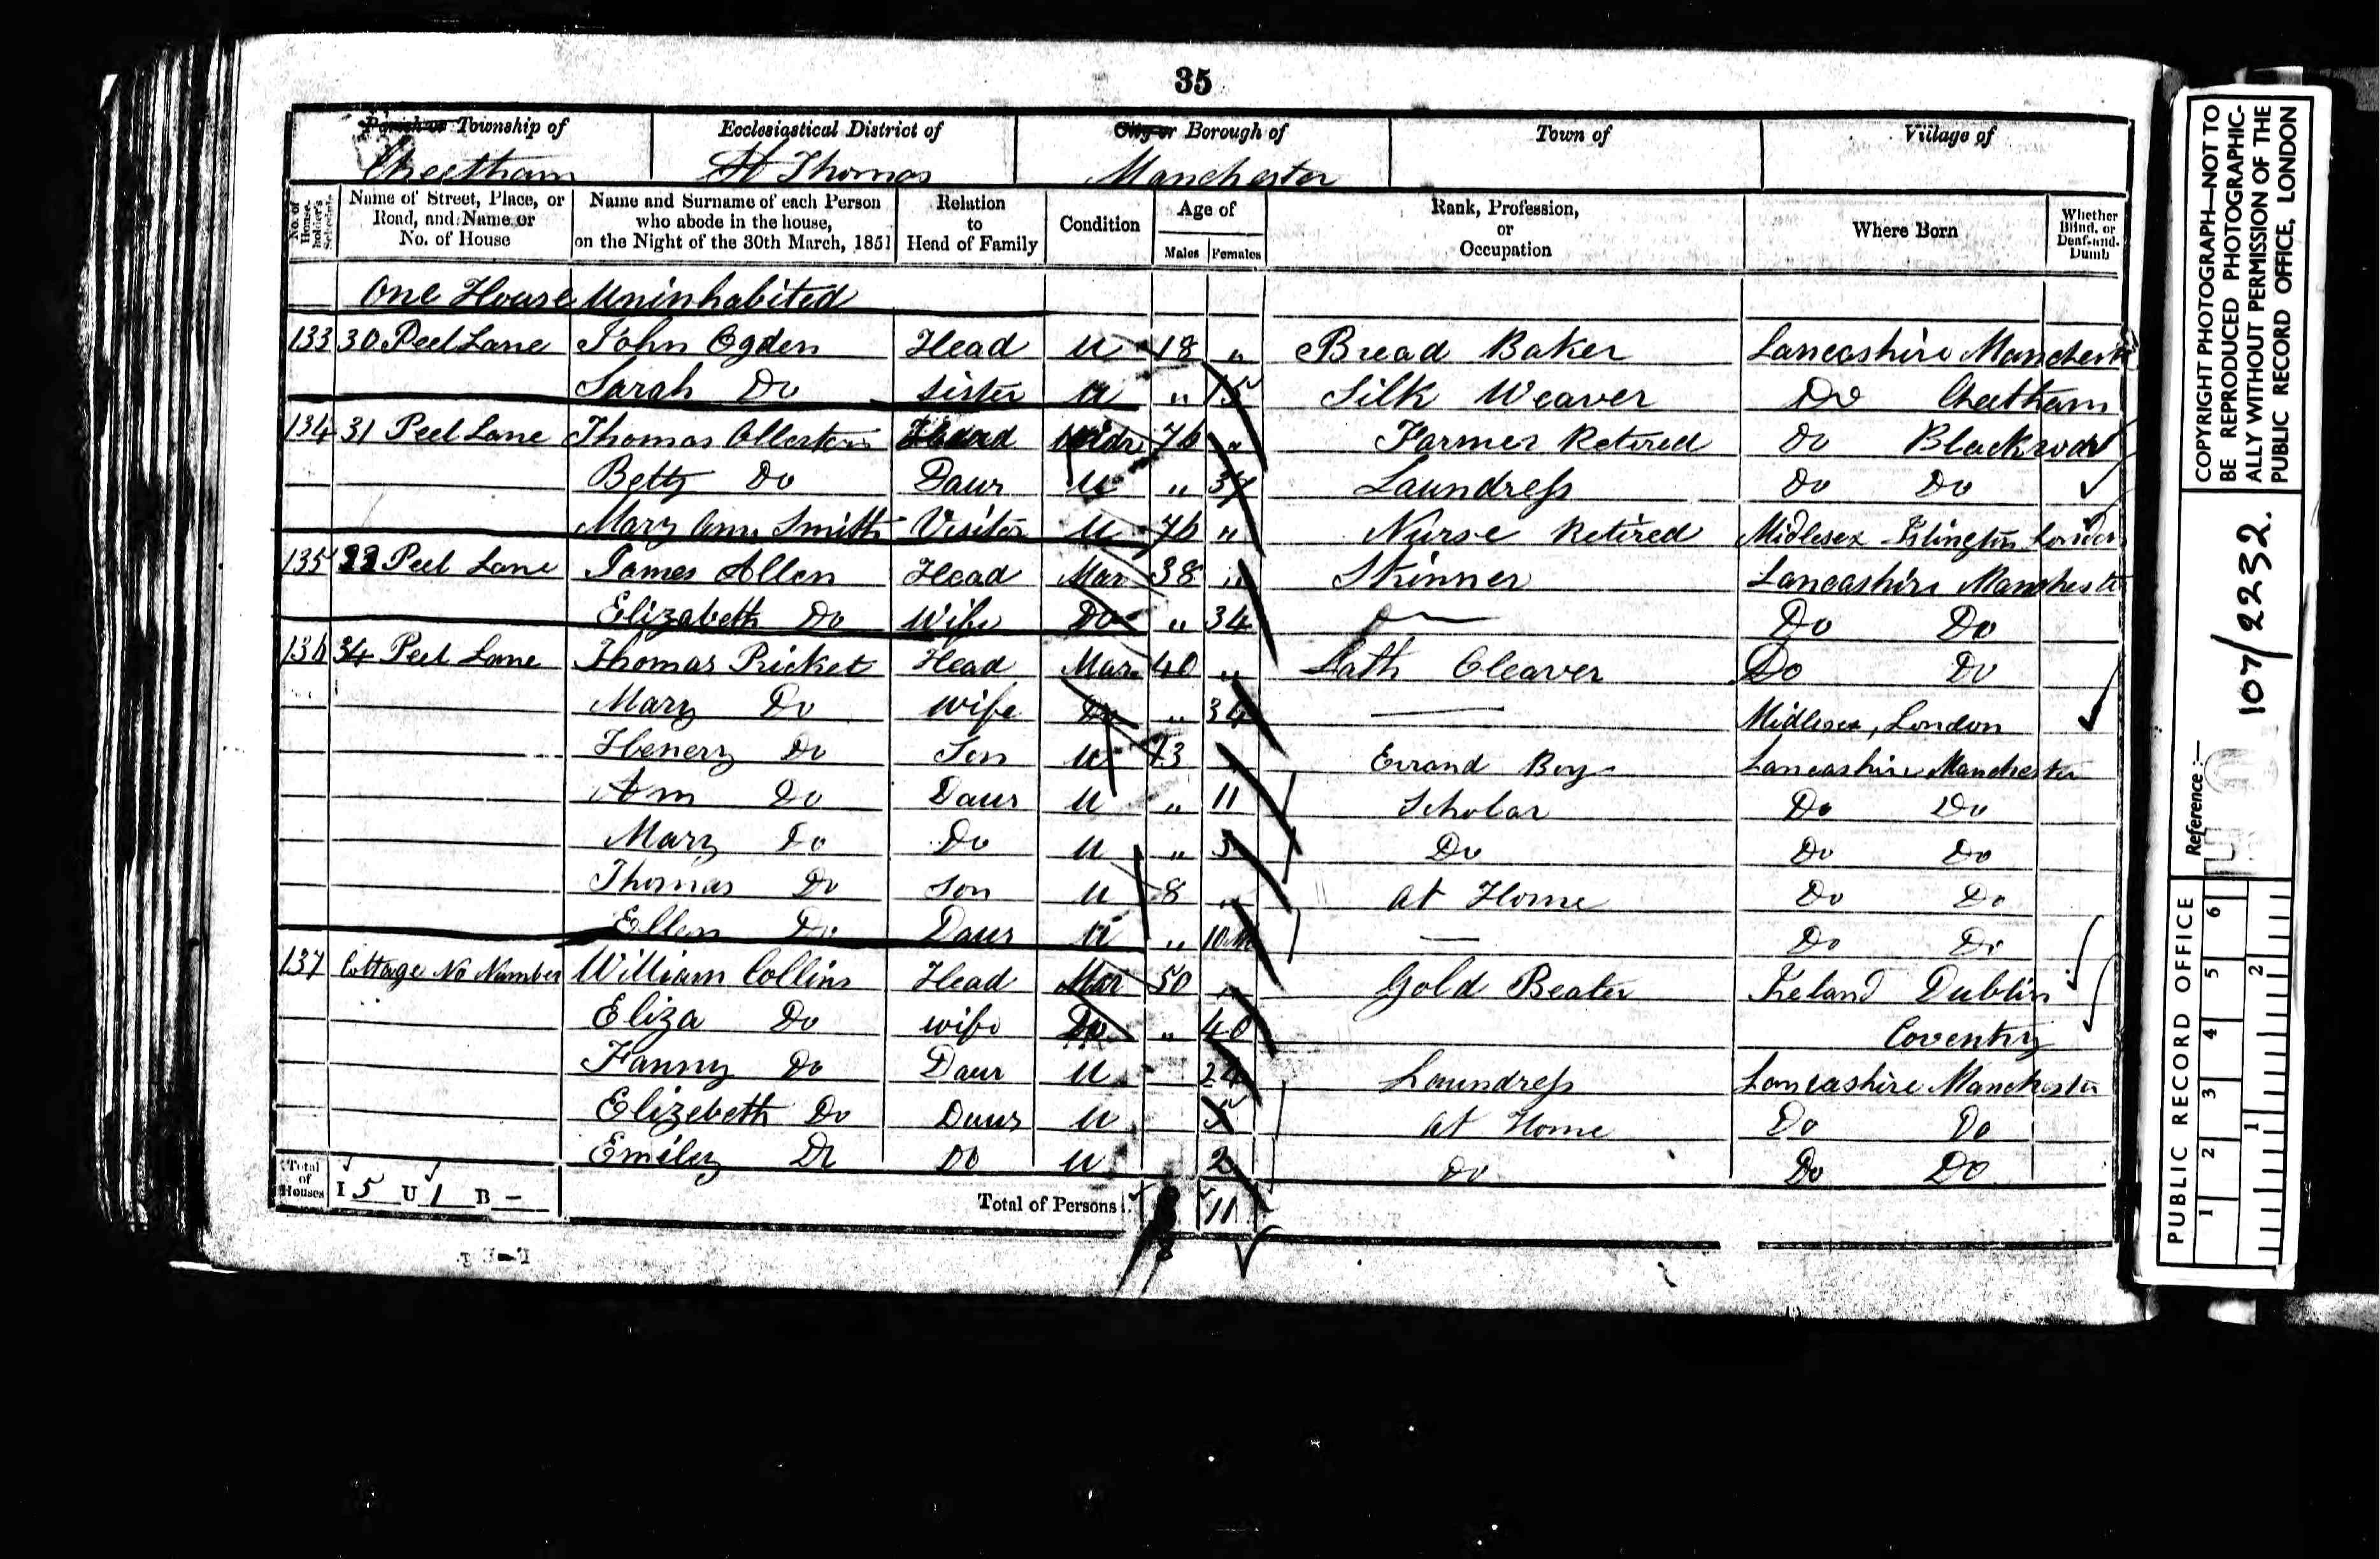 35
Parish or Township of Ecclesiastical District of City or Borough of Town of Village of
Cheetham St Thomas Manchester
No. of House-holder's Schedule Name of Street, Place, or Road, and Name or No. of House Name and Surname of each Person who abode in the house, on the Night of the 30th March, 1851 Relation to Head of Family Condition Age of Males Females Rank, Profession, or Occupation Where Born Whether Blind, or Deaf-and-Dumb
One House Uninhabited
133 30 Peel Lane John Ogden Head U 18 " Bread Baker Lancashire Manchester
Sarah Do Sister U " 15 Silk Weaver Do Cheetham
134 31 Peel Lane Thomas Head Widr 76 " Farmer Retired Do
Betty Do Daur U " 37 Laundress Do Do
Mary Ann Smith Visitor U 76 " Nurse Retired Midlesex Islington London
135 Peel Lane James Allen Head Mar 38 " Skinner Lancashire Manchester
Elizabeth Do Wife Do " 34 Do Do
136 34 Peel Lane Thomas Pricket Head Mar 40 " Lath Cleaver Do Do
Mary Do Wife Do " 34 — Midlesex, London
Henery Do Son U 13 " Errand Boy Lancashire Manchester
Ann Do Daur U " 11 Scholar Do Do
Mary Do Do U " 5 Do Do Do
Thomas Do Son U 8 " At Home Do Do
Ellen Do Daur U " 10 M — Do Do
137 Cottage No Number William Collins Head Mar 50 " Gold Beater Ireland Dublin
Eliza Do Wife Do " 40 Coventry
Fanny Do Daur U 24 Laundress Lancashire Manchester
Elizebeth Do Daur U 5 At Home Do Do
Emiley Do Do U 2 Do Do Do
Total of Houses I 5 U 1 B — Total of Persons 11
COPYRIGHT PHOTOGRAPH—NOT TO
BE REPRODUCED PHOTOGRAPHIC-
ALLY WITHOUT PERMISSION OF THE
PUBLIC RECORD OFFICE, LONDON
Reference:— 107/2232.
PUBLIC RECORD OFFICE
1 2 3 4 5 6
1 2